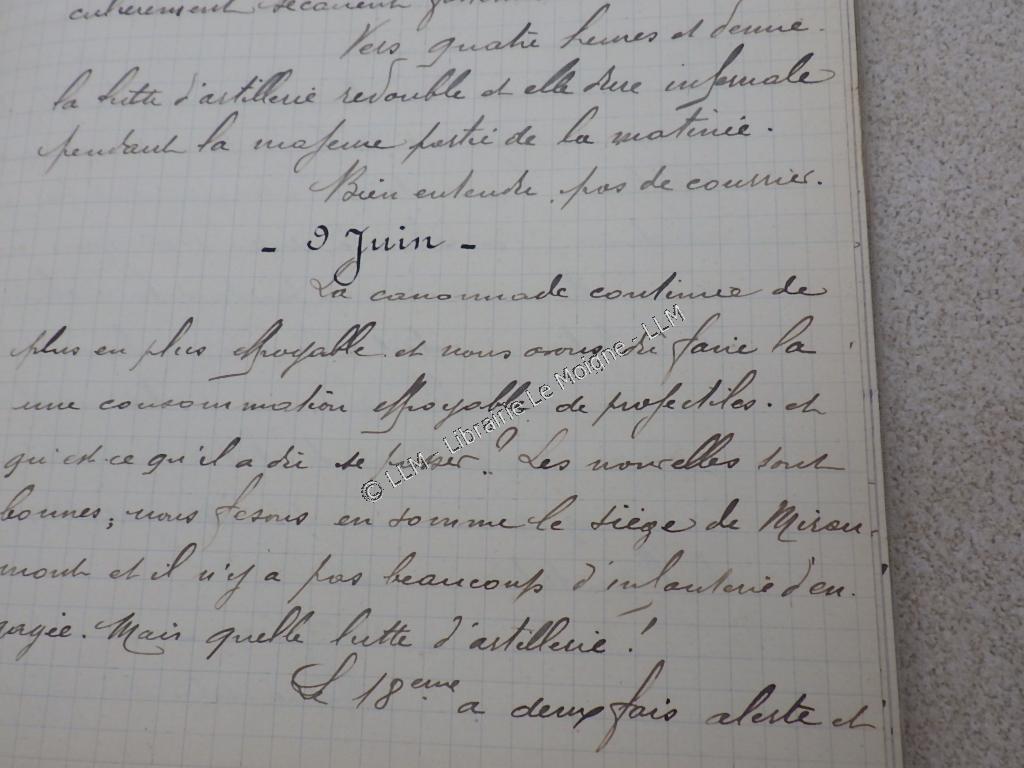 Vers quatre heures et demie
la lutte d'artillerie redouble et elle dure infernale
pendant la majeure partie de la matinée.
Bien entendu, pas de courrier.
- 9 Juin -
La canonnade continue de
plus en plus effroyable et nous avons dû faire là
une consommation effroyable de projectiles. et
qu'est-ce qu'il a dû se passer? Les nouvelles sont
bonnes; nous fesons en somme le siège de Mirau-
mont et il n'y a pas beaucoup d'infanterie d'en-
gagée. Mais quelle lutte d'artillerie!
Le 18eme a deux fois alerte et
© LLM - Librairie Le Moigne - LLM